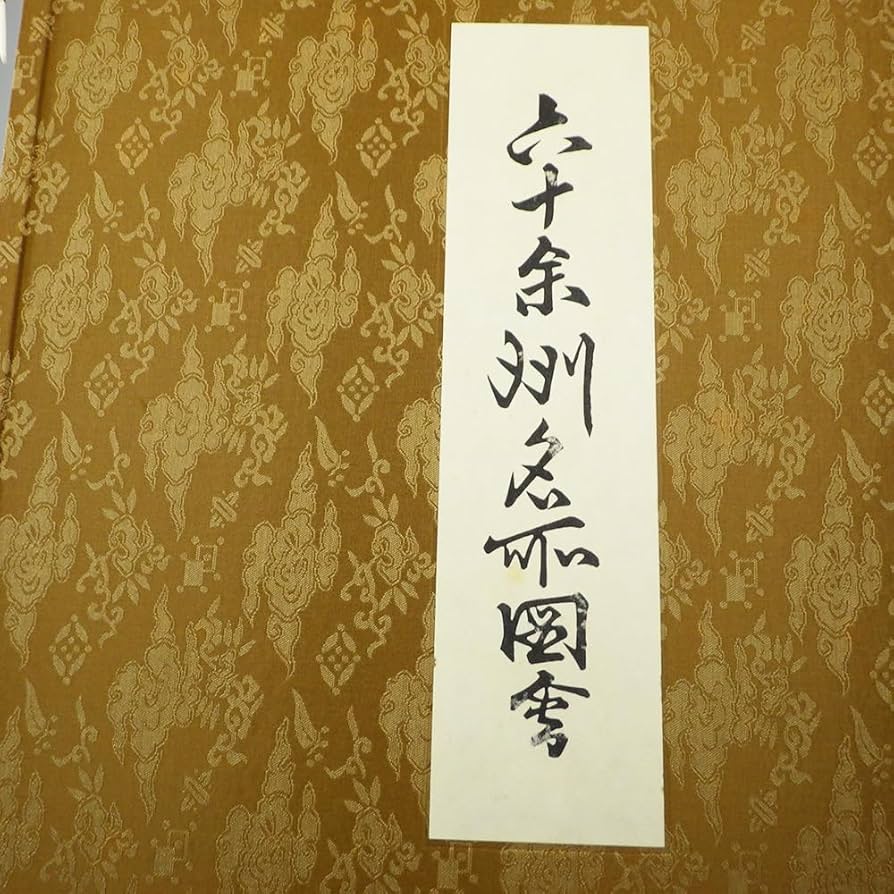 六十余州名所圖會